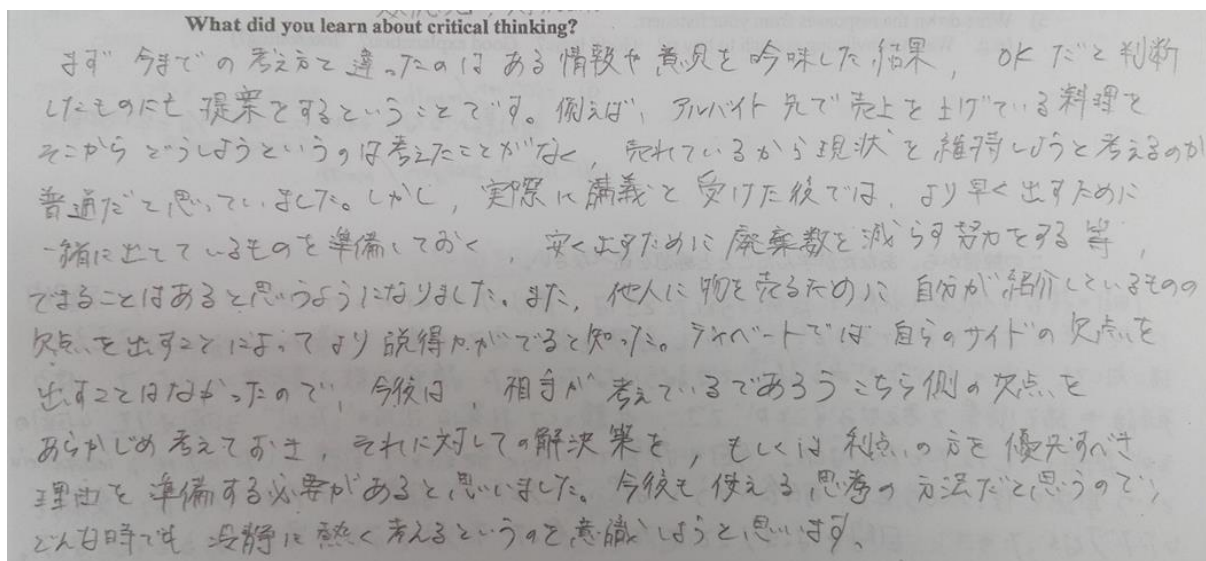 What did you learn about critical thinking?
まず 今までの考え方と違ったのはある情報や意見を吟味した結果, OKだと判断
したものにも提案をするということです。例えば, アルバイト先で売上を上げている料理を
そこからどうしようというのは考えたことがなく, 売れているから現状を維持しようと考えるのが
普通だと思っていました。しかし, 実際に講義を受けた後では, より早く出すために
一緒に出てているものを準備しておく, 安く出すために廃棄数を減らす努力をする等,
できることはあると思うようになりました。また, 他人に物を売るために自分が紹介しているものの
欠点を出すことによってより説得力がでると知った。ディベートでは自らのサイドの欠点を
出すことはなかったので, 今後は, 相手が考えているであろうこちら側の欠点を
あらかじめ考えておき, それに対しての解決策を, もしくは利点の方を優先すべき
理由を準備する必要があると思いました。今後も使える思考の方法だと思うので,
どんな時でも冷静に熱く考えるというのを意識しようと思います。